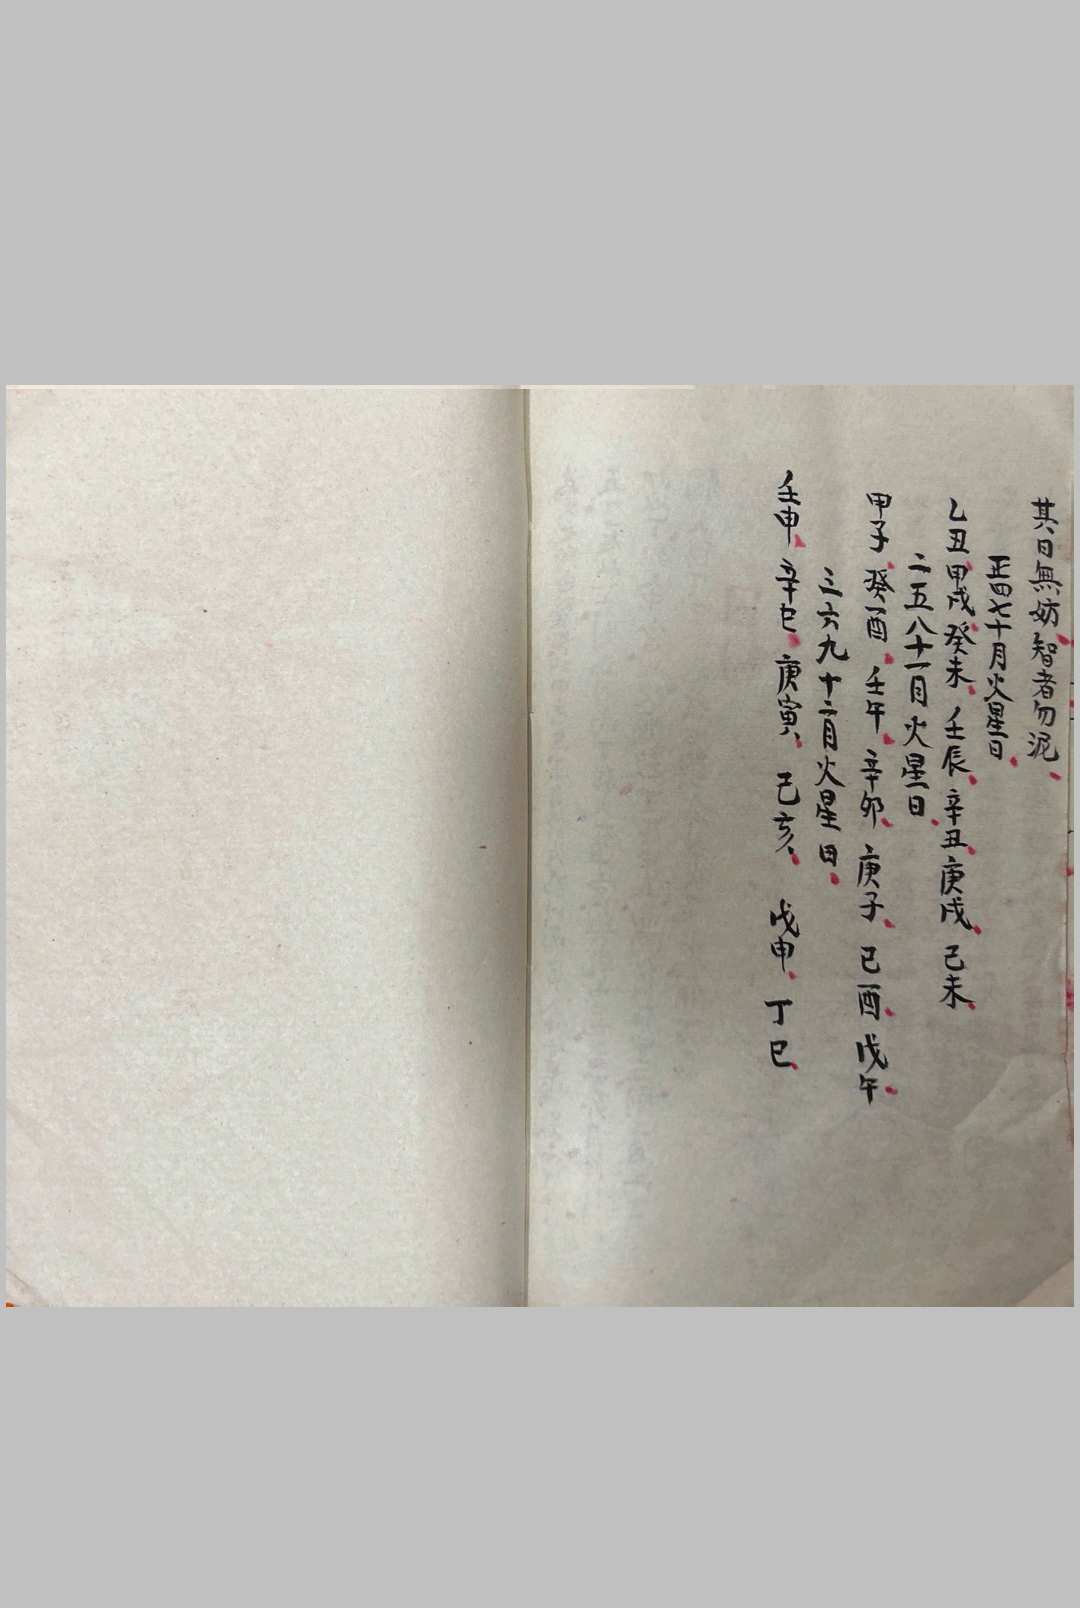 其日無妨智者勿泥
正四七十月火星日
乙丑甲戌癸未壬辰辛丑庚戌己未
二五八十一月火星日
甲子癸酉壬午辛卯庚子己酉戊午
三六九十二月火星日
壬申辛巳庚寅己亥戊申丁巳